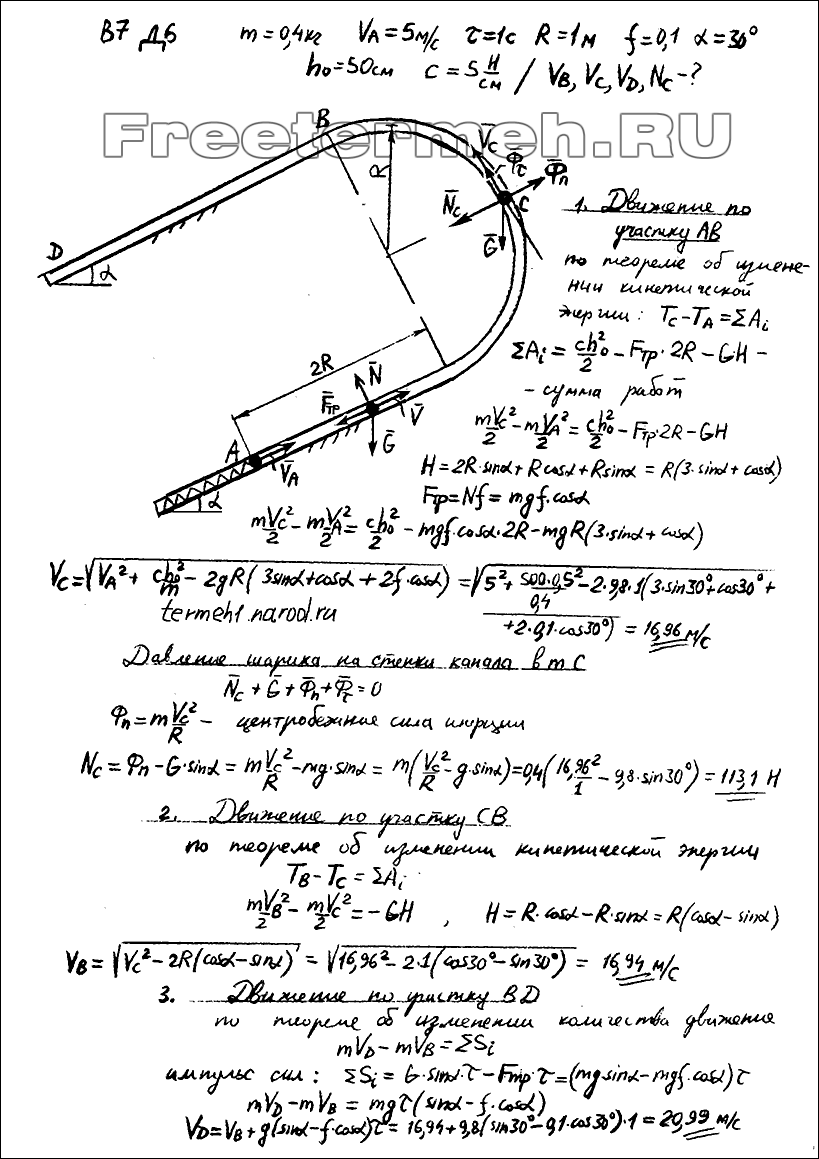 В7 Д6 m=0,4кг V_A=5м/с τ=1с R=1м f=0,1 α=30°
h₀=50см c=5 Н/см / V_B, V_C, V_D, N_C -?
Freetermeh.RU
B
V̄_C
Φ̄_τ
Φ̄_n
R
N̄_C
C
Ḡ
D
α
1. Движение по
участку АВ
по теореме об измене-
нии кинетической
энергии: T_C-T_A=ΣA_i
ΣA_i = ch₀²/2 - F_тр·2R - GH -
- сумма работ
2R
N̄
F̄_тр
V̄
Ḡ
A
V̄_A
α
mV_C²/2 - mV_A²/2 = ch₀²/2 - F_тр·2R - GH
H = 2R·sinα + Rcosα + Rsinα = R(3·sinα + cosα)
F_тр = Nf = mgf·cosα
mV_C²/2 - mV_A²/2 = ch₀²/2 - mgf·cosα·2R - mgR(3·sinα + cosα)
V_C = √(V_A² + ch₀²/m - 2gR(3sinα + cosα + 2f·cosα)) = √(5² + 500·0,5²/0,4 - 2·9,8·1(3·sin30° + cos30° +
+2·0,1·cos30°)) = 16,96 м/с
termeh1.narod.ru
Давление шарика на стенки канала в т С
N̄_C + Ḡ + Φ̄_n + Φ̄_τ = 0
Φ_n = m V_C²/R - центробежная сила инерции
N_C = Φ_n - G·sinα = m V_C²/R - mg·sinα = m(V_C²/R - g·sinα) = 0,4(16,96²/1 - 9,8·sin30°) = 113,1 Н
2. Движение по участку СВ
по теореме об изменении кинетической энергии
T_B - T_C = ΣA_i
mV_B²/2 - mV_C²/2 = -GH , H = R·cosα - R·sinα = R(cosα - sinα)
V_B = √(V_C² - 2R(cosα - sinα)) = √(16,96² - 2·1(cos30° - sin30°)) = 16,94 м/с
3. Движение по участку BD
по теореме об изменении количества движения
mV_D - mV_B = ΣS_i
импульс сил: ΣS_i = G·sinα·τ - F_тр·τ = (mgsinα - mgf·cosα)τ
mV_D - mV_B = mgτ(sinα - f·cosα)
V_D = V_B + g(sinα - f·cosα)τ = 16,94 + 9,8(sin30° - 0,1·cos30°)·1 = 20,99 м/с